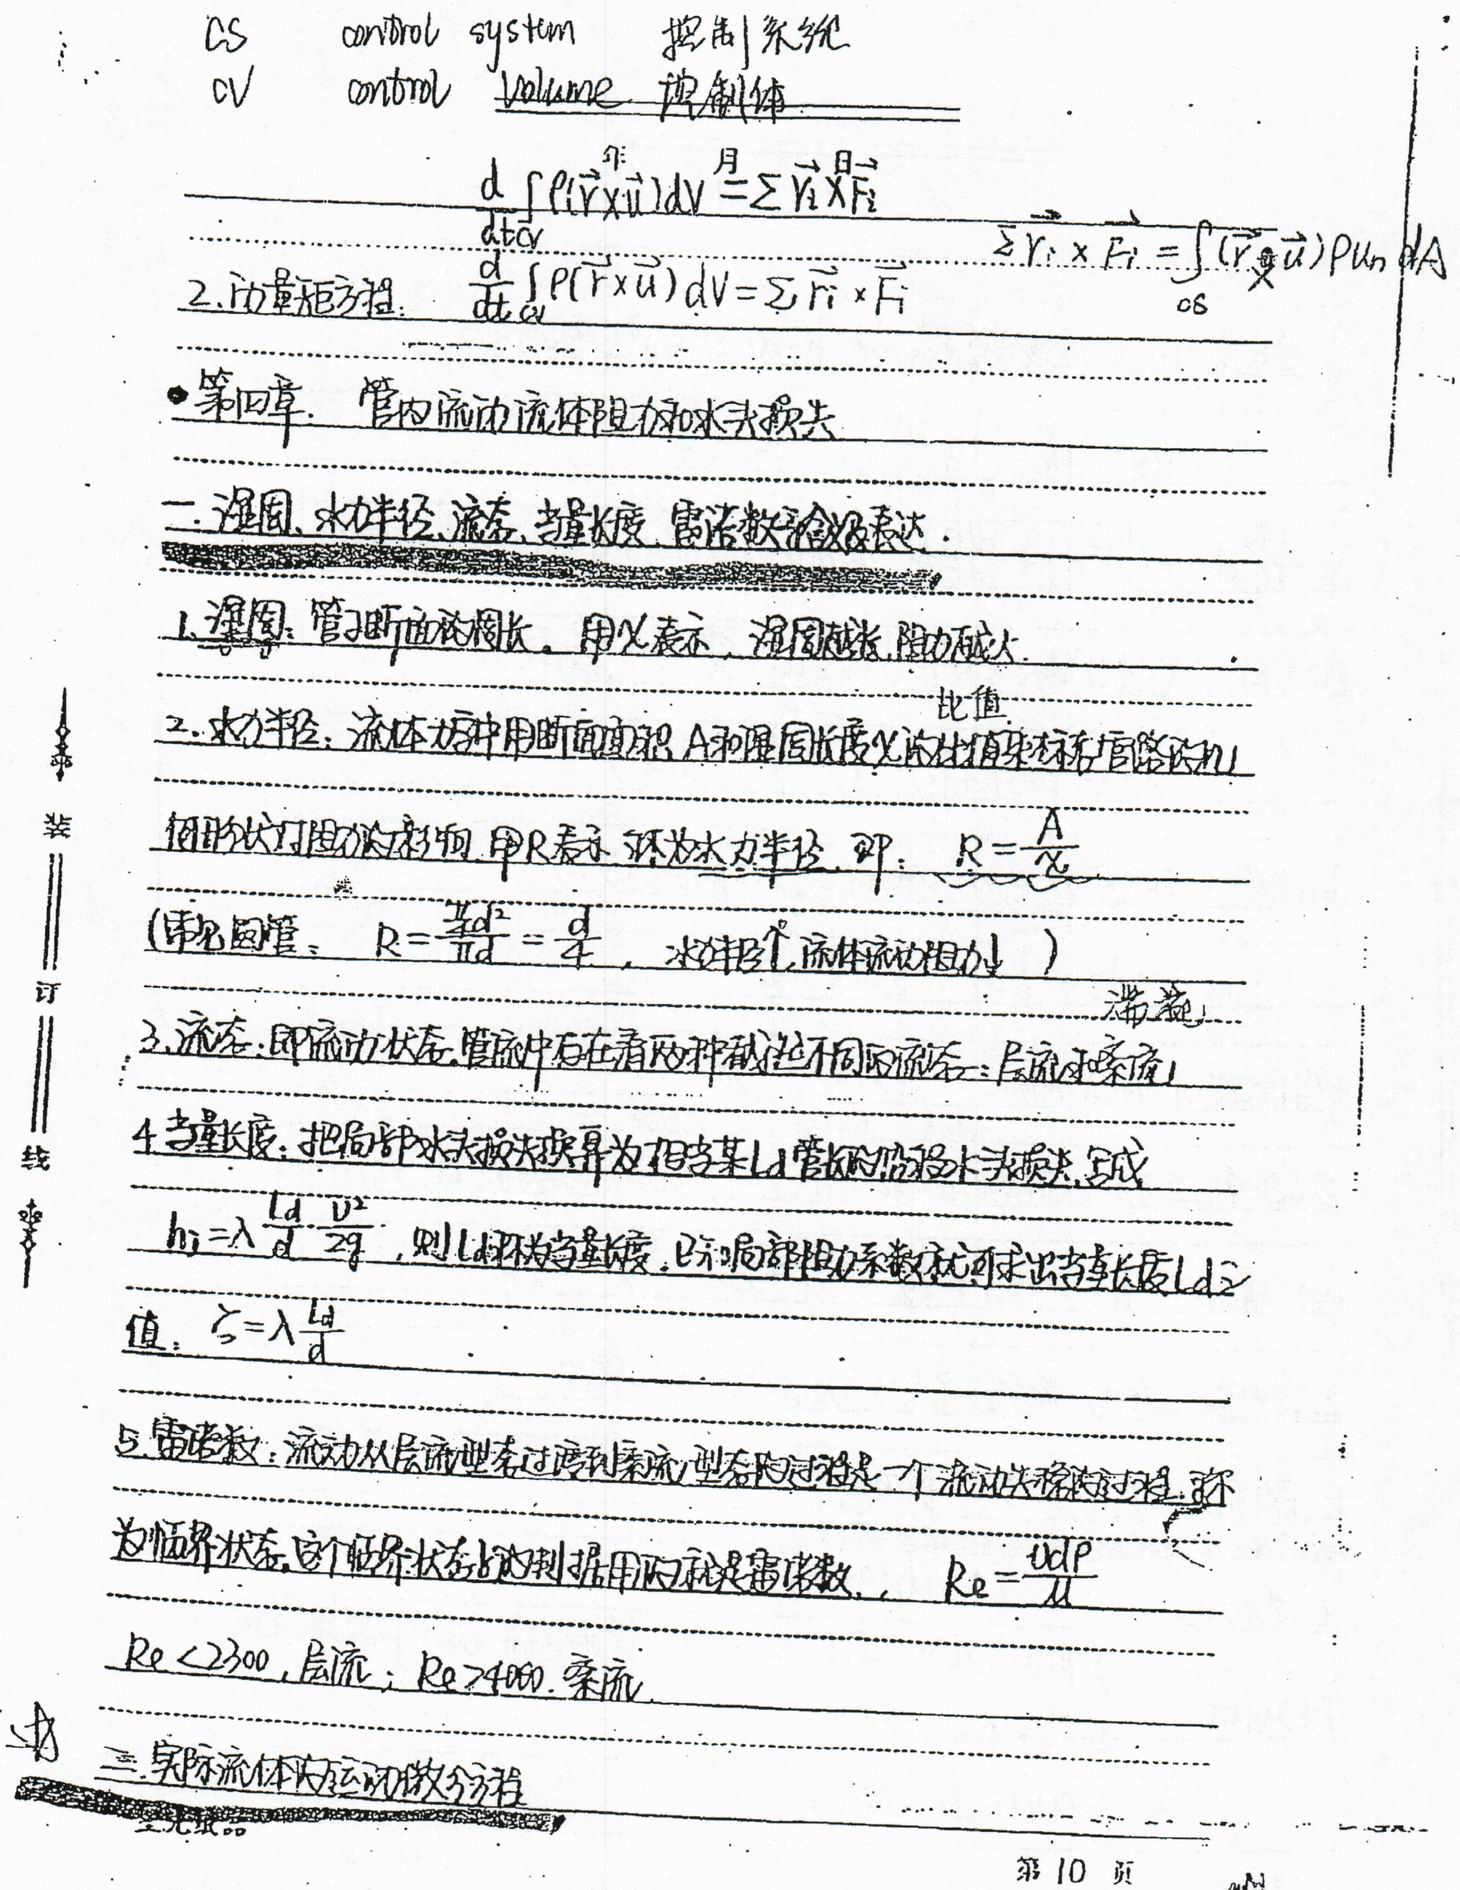 CS control system 控制系统
CV control volume 控制体
年 月 日
d/dt ∫cv ρ(r⃗×u⃗)dV = Σ r⃗i×F⃗i
Σ r⃗i × F⃗i = ∫cs (r⃗×u⃗)ρun dA
2.动量矩方程: d/dt ∫cv ρ(r⃗×u⃗)dV = Σ r⃗i × F⃗i
第四章. 管内流动流体阻力和水头损失
一.湿周、水力半径、流态、当量长度、雷诺数含义及表达.
1.湿周:管子断面 周长。用χ表示,湿周越长,阻力越大.
比值
2.水力半径:流体力学中用断面面积A和湿周长度χ的比值来标志管路的几
何形状对阻力的影响,用R表示,称为水力半径,即: R=A/χ
(常见圆管: R=(π/4 d²)/(πd)=d/4,水力半径↑,流体流动阻力↓)
3.流态:即流动状态,管流中存在着两种截然不同的流态:层流和紊流
4.当量长度:把局部水头损失换算为相当某Ld管长的沿程水头损失,写成
hj=λ Ld/d v²/2g,则Ld称为当量长度,已知局部阻力系数就可求出当量长度Ld之
值: ζ=λ Ld/d
5.雷诺数:流动从层流型态过渡到紊流型态的过程是一个流动失稳的过程,称
为临界状态,这个临界状态的判据用的就是雷诺数, Re=vdρ/μ
Re<2300,层流; Re>4000.紊流.
二.实际流体的运动微分方程
装
订
线
第 10 页